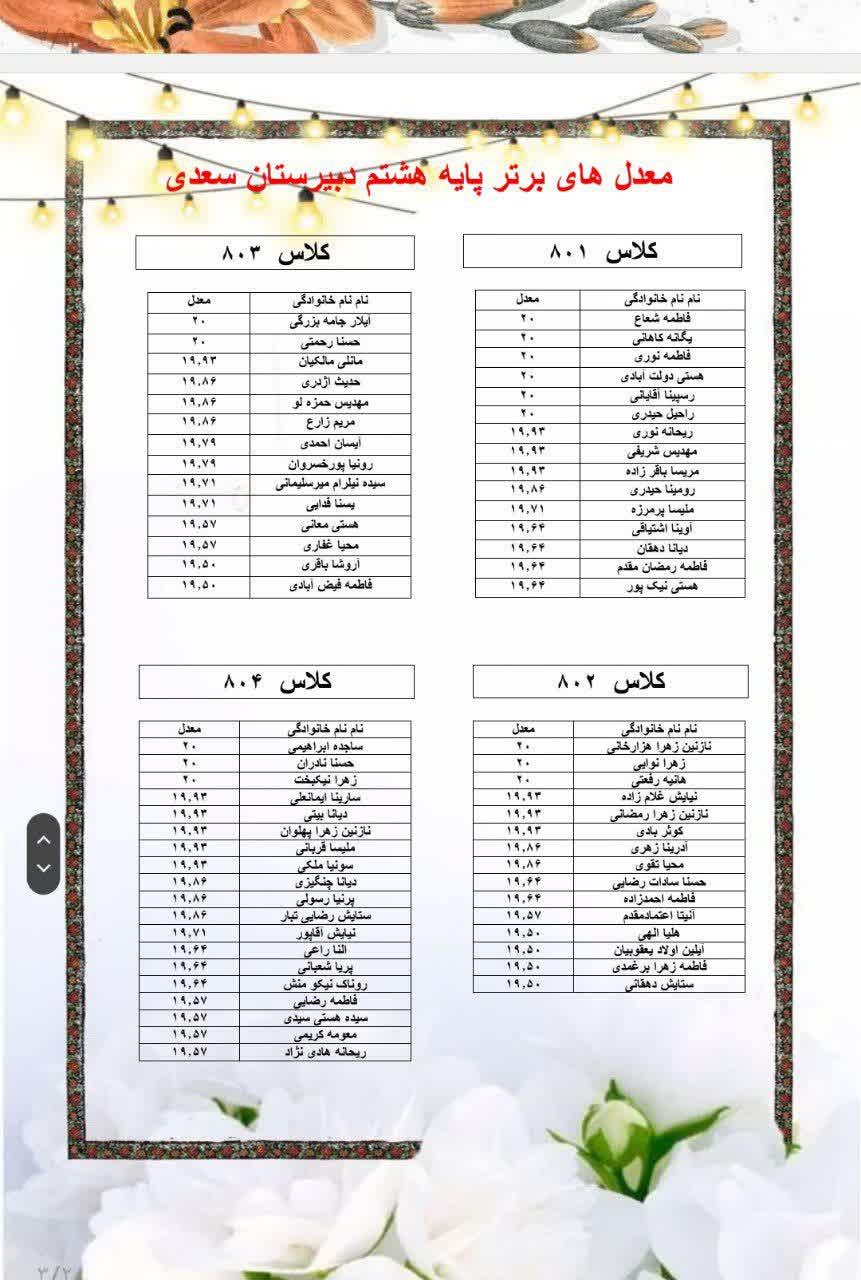 معدل های برتر پایه هشتم دبیرستان سعدی
کلاس ۸۰۱
نام نام خانوادگی معدل
فاطمه شعاع ۲۰
یگانه کاهانی ۲۰
فاطمه نوری ۲۰
هستی دولت آبادی ۲۰
رسپینا آقایانی ۲۰
راحیل حیدری ۲۰
ریحانه نوری ۱۹,۹۳
مهدیس شریفی ۱۹,۹۳
مریسا باقر زاده ۱۹,۹۳
رومینا حیدری ۱۹,۸۶
ملیسا پرمرزه ۱۹,۷۱
آوینا اشتیاقی ۱۹,۶۴
دیانا دهقان ۱۹,۶۴
فاطمه رمضان مقدم ۱۹,۶۴
هستی نیک پور ۱۹,۶۴
کلاس ۸۰۳
نام نام خانوادگی معدل
آیلار جامه بزرگی ۲۰
حسنا رحمتی ۲۰
مانلی مالکیان ۱۹,۹۳
حدیث اژدری ۱۹,۸۶
مهدیس حمزه لو ۱۹,۸۶
مریم زارع ۱۹,۸۶
آیسان احمدی ۱۹,۷۹
رونیا پورخسروان ۱۹,۷۹
سیده نیلرام میرسلیمانی ۱۹,۷۱
یسنا فدایی ۱۹,۷۱
هستی معانی ۱۹,۵۷
محیا غفاری ۱۹,۵۷
آروشا باقری ۱۹,۵۰
فاطمه فیض آبادی ۱۹,۵۰
کلاس ۸۰۲
نام نام خانوادگی معدل
نازنین زهرا هزارخانی ۲۰
زهرا نوایی ۲۰
هانیه رفعتی ۲۰
نیایش غلام زاده ۱۹,۹۳
نازنین زهرا رمضانی ۱۹,۹۳
کوثر بادی ۱۹,۹۳
آدرینا زهری ۱۹,۸۶
محیا تقوی ۱۹,۸۶
حسنا سادات رضایی ۱۹,۶۴
فاطمه احمدزاده ۱۹,۶۴
آنیتا اعتمادمقدم ۱۹,۵۷
هلیا الهی ۱۹,۵۰
آیلین اولاد یعقوبیان ۱۹,۵۰
فاطمه زهرا برغمدی ۱۹,۵۰
ستایش دهقانی ۱۹,۵۰
کلاس ۸۰۴
نام نام خانوادگی معدل
ساجده ابراهیمی ۲۰
حسنا نادران ۲۰
زهرا نیکبخت ۲۰
سارینا ایمانعلی ۱۹,۹۳
دیانا بیتی ۱۹,۹۳
نازنین زهرا پهلوان ۱۹,۹۳
ملیسا قربانی ۱۹,۹۳
سونیا ملکی ۱۹,۹۳
دیانا چنگیزی ۱۹,۸۶
پرنیا رسولی ۱۹,۸۶
ستایش رضایی تبار ۱۹,۸۶
نیایش آقاپور ۱۹,۷۱
النا راعی ۱۹,۶۴
پریا شعبانی ۱۹,۶۴
روناک نیکو منش ۱۹,۶۴
فاطمه رضایی ۱۹,۵۷
سیده هستی سیدی ۱۹,۵۷
معومه کریمی ۱۹,۵۷
ریحانه هادی نژاد ۱۹,۵۷
۳/۲